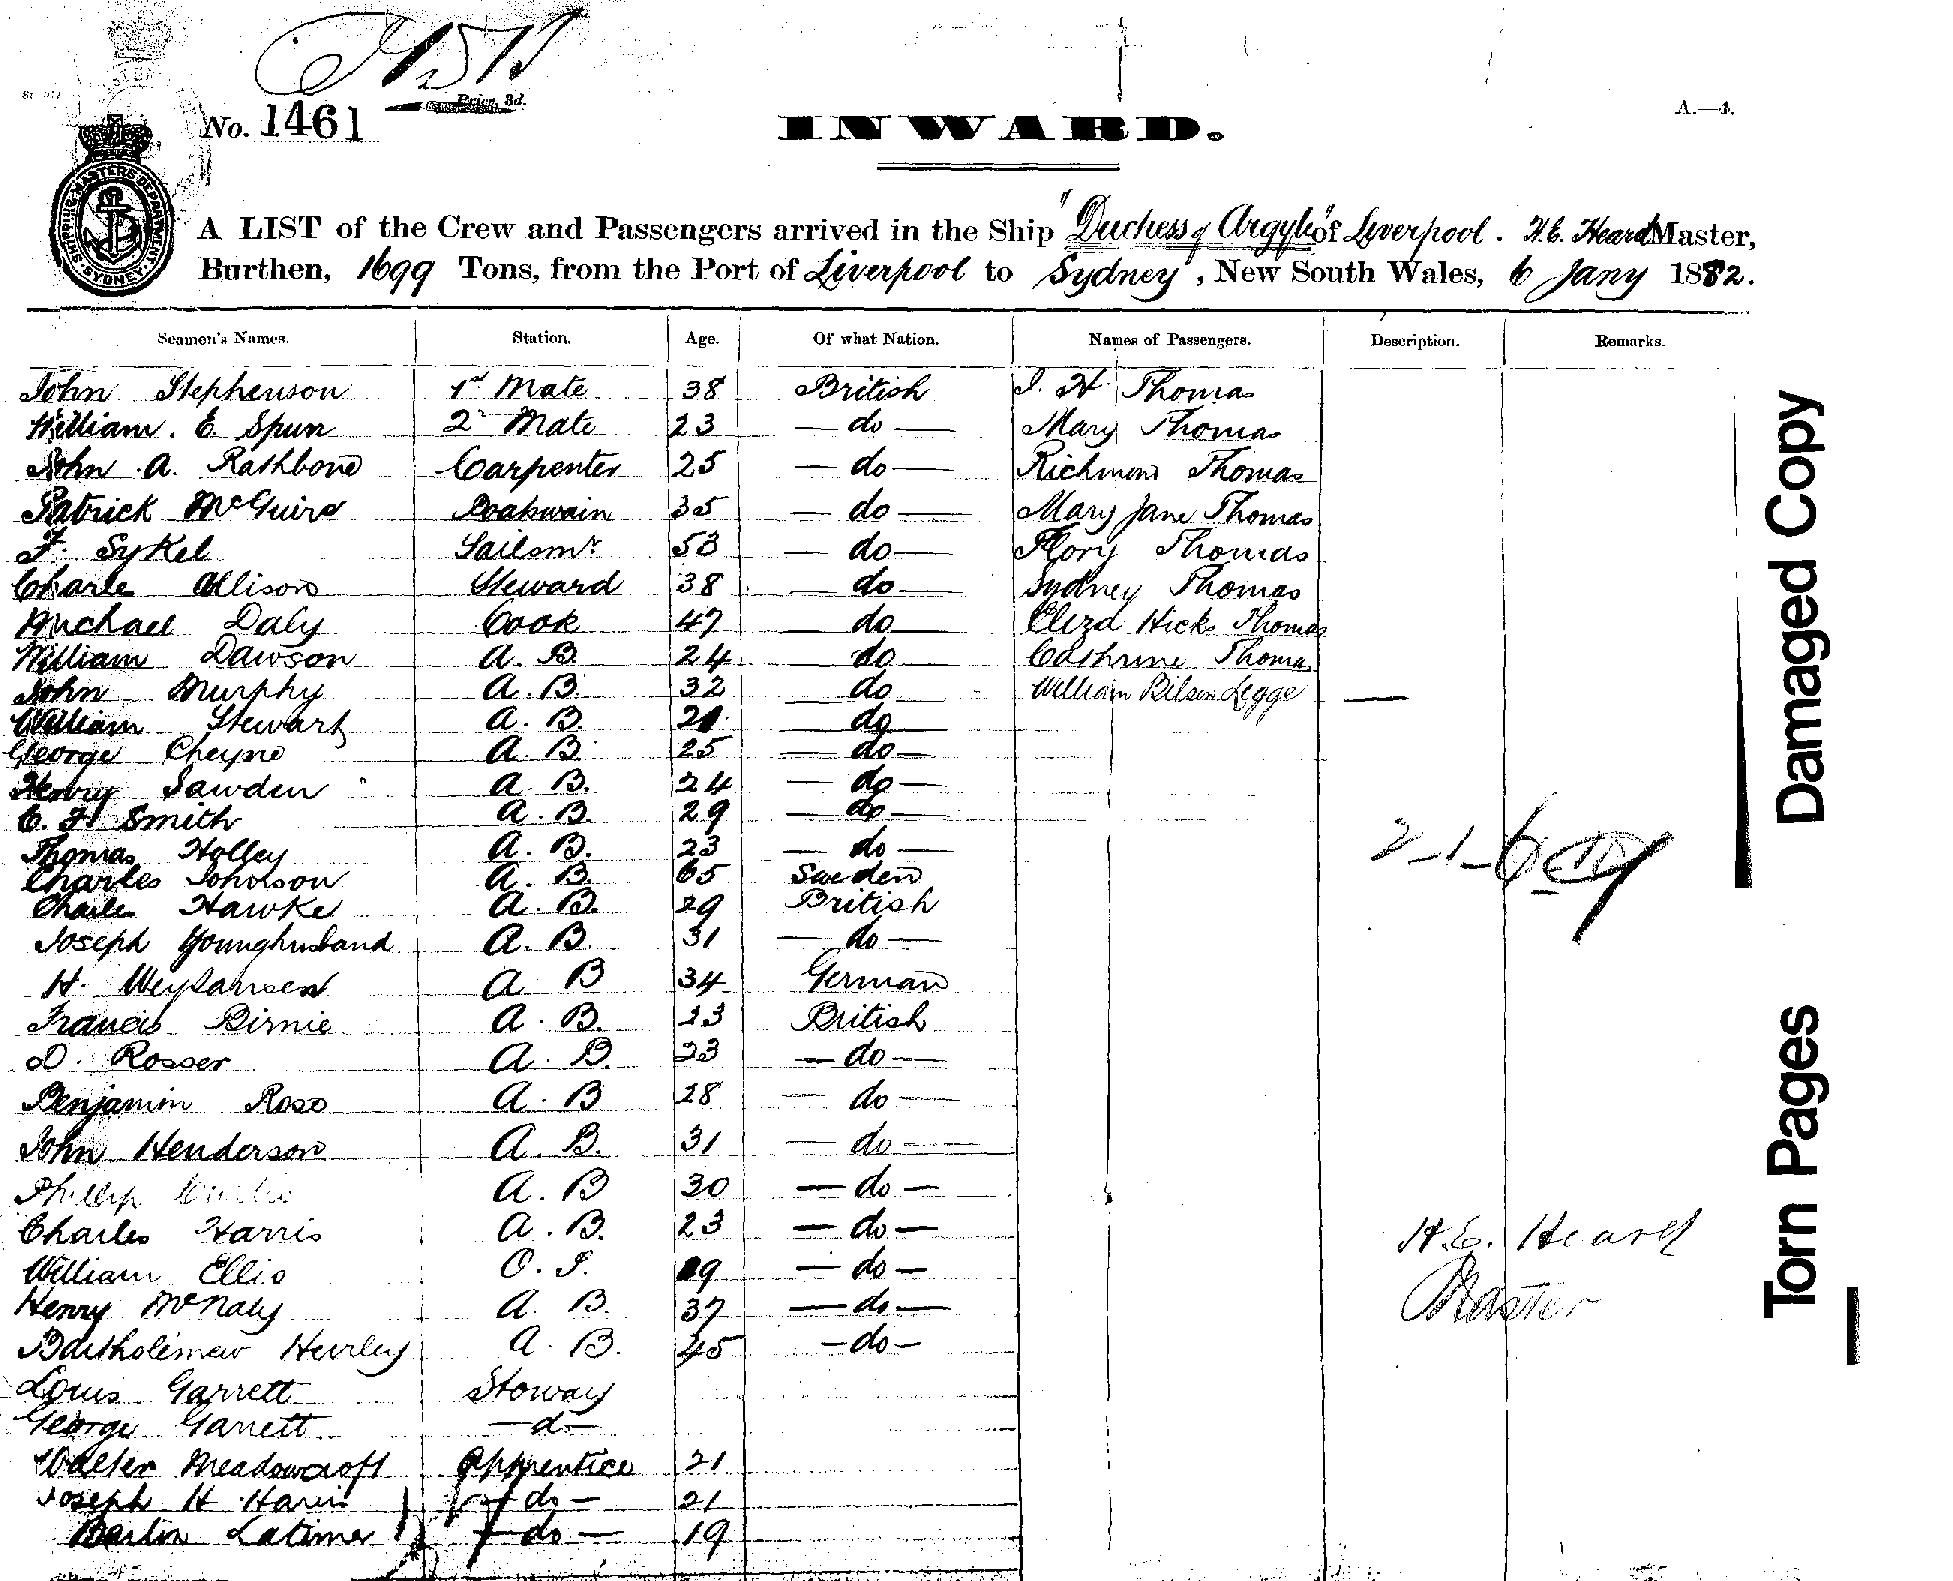 Price, 3d.
No. 1461
A.—4.
INWARD.
SHIPPING MASTERS DEPARTMENT SYDNEY
A LIST of the Crew and Passengers arrived in the Ship "Duchess of Argyle" of Liverpool. H.E. Heard Master,
Burthen, 1699 Tons, from the Port of Liverpool to Sydney, New South Wales, 6 Jany 1882.
Seamen's Names. Station. Age. Of what Nation. Names of Passengers. Description. Remarks.
John Stephenson 1st Mate 38 British J. H Thomas
William. E Spurr 2d Mate 23 — do — Mary Thomas
John A. Rathbone Carpenter 25 — do — Richmond Thomas
Patrick McGuire Boatswain 35 — do — Mary Jane Thomas
F. Sykel Sailsmr 53 — do — Flory Thomas
Charle Allison Steward 38 do Sydney Thomas
Michael Daly Cook 47 do Eliza Hicks Thomas
William Dawson A. B. 24 do Cathrine Thomas
John Murphy A. B. 32 do William Bilson Legge —
William Stewart A. B. do
George Cheyne A. B. 25 — do —
Henry Sawden A B. 24 — do —
C. F. Smith A. B. 29 — do —
Thomas Holley A. B. 23 — do —
Charles Johnson A. B. 65 Sweden
Charles Hawke A. B. 29 British
Joseph Younghusband A. B. 31 — do —
H. A B 34 German
Francis Birnie A. B. 23 British
D. Rosser A. B. 23 — do —
Benjamin Ross A. B 28 — do —
John Henderson A. B. 31 — do —
Phillip A. B 30 — do —
Charles Harris A. B. 23 — do —
William Ellis O. S. 19 — do —
Henry McNaly A. B. 37 — do —
Bartholemew Hurley A. B. 45 — do —
Louis Garrett Stoway
George Garrett — d —
Walter Meadowcroft Apprentice 21
Joseph H Harris — do — 21
Latimer — do — 19
2-1-6
H.E. Heard
Master
Damaged Copy
Torn Pages